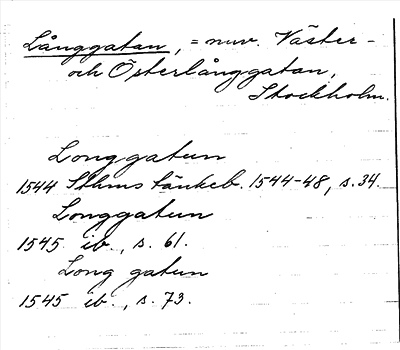 Långgatan, = nuv. Väster-
och Österlånggatan,
Stockholm.
Longgatun
1544 Sthms tänkeb. 1544-48, s. 34.
Longgatun
1545 ib., s. 61.
Long gatun
1545 ib., s. 73.